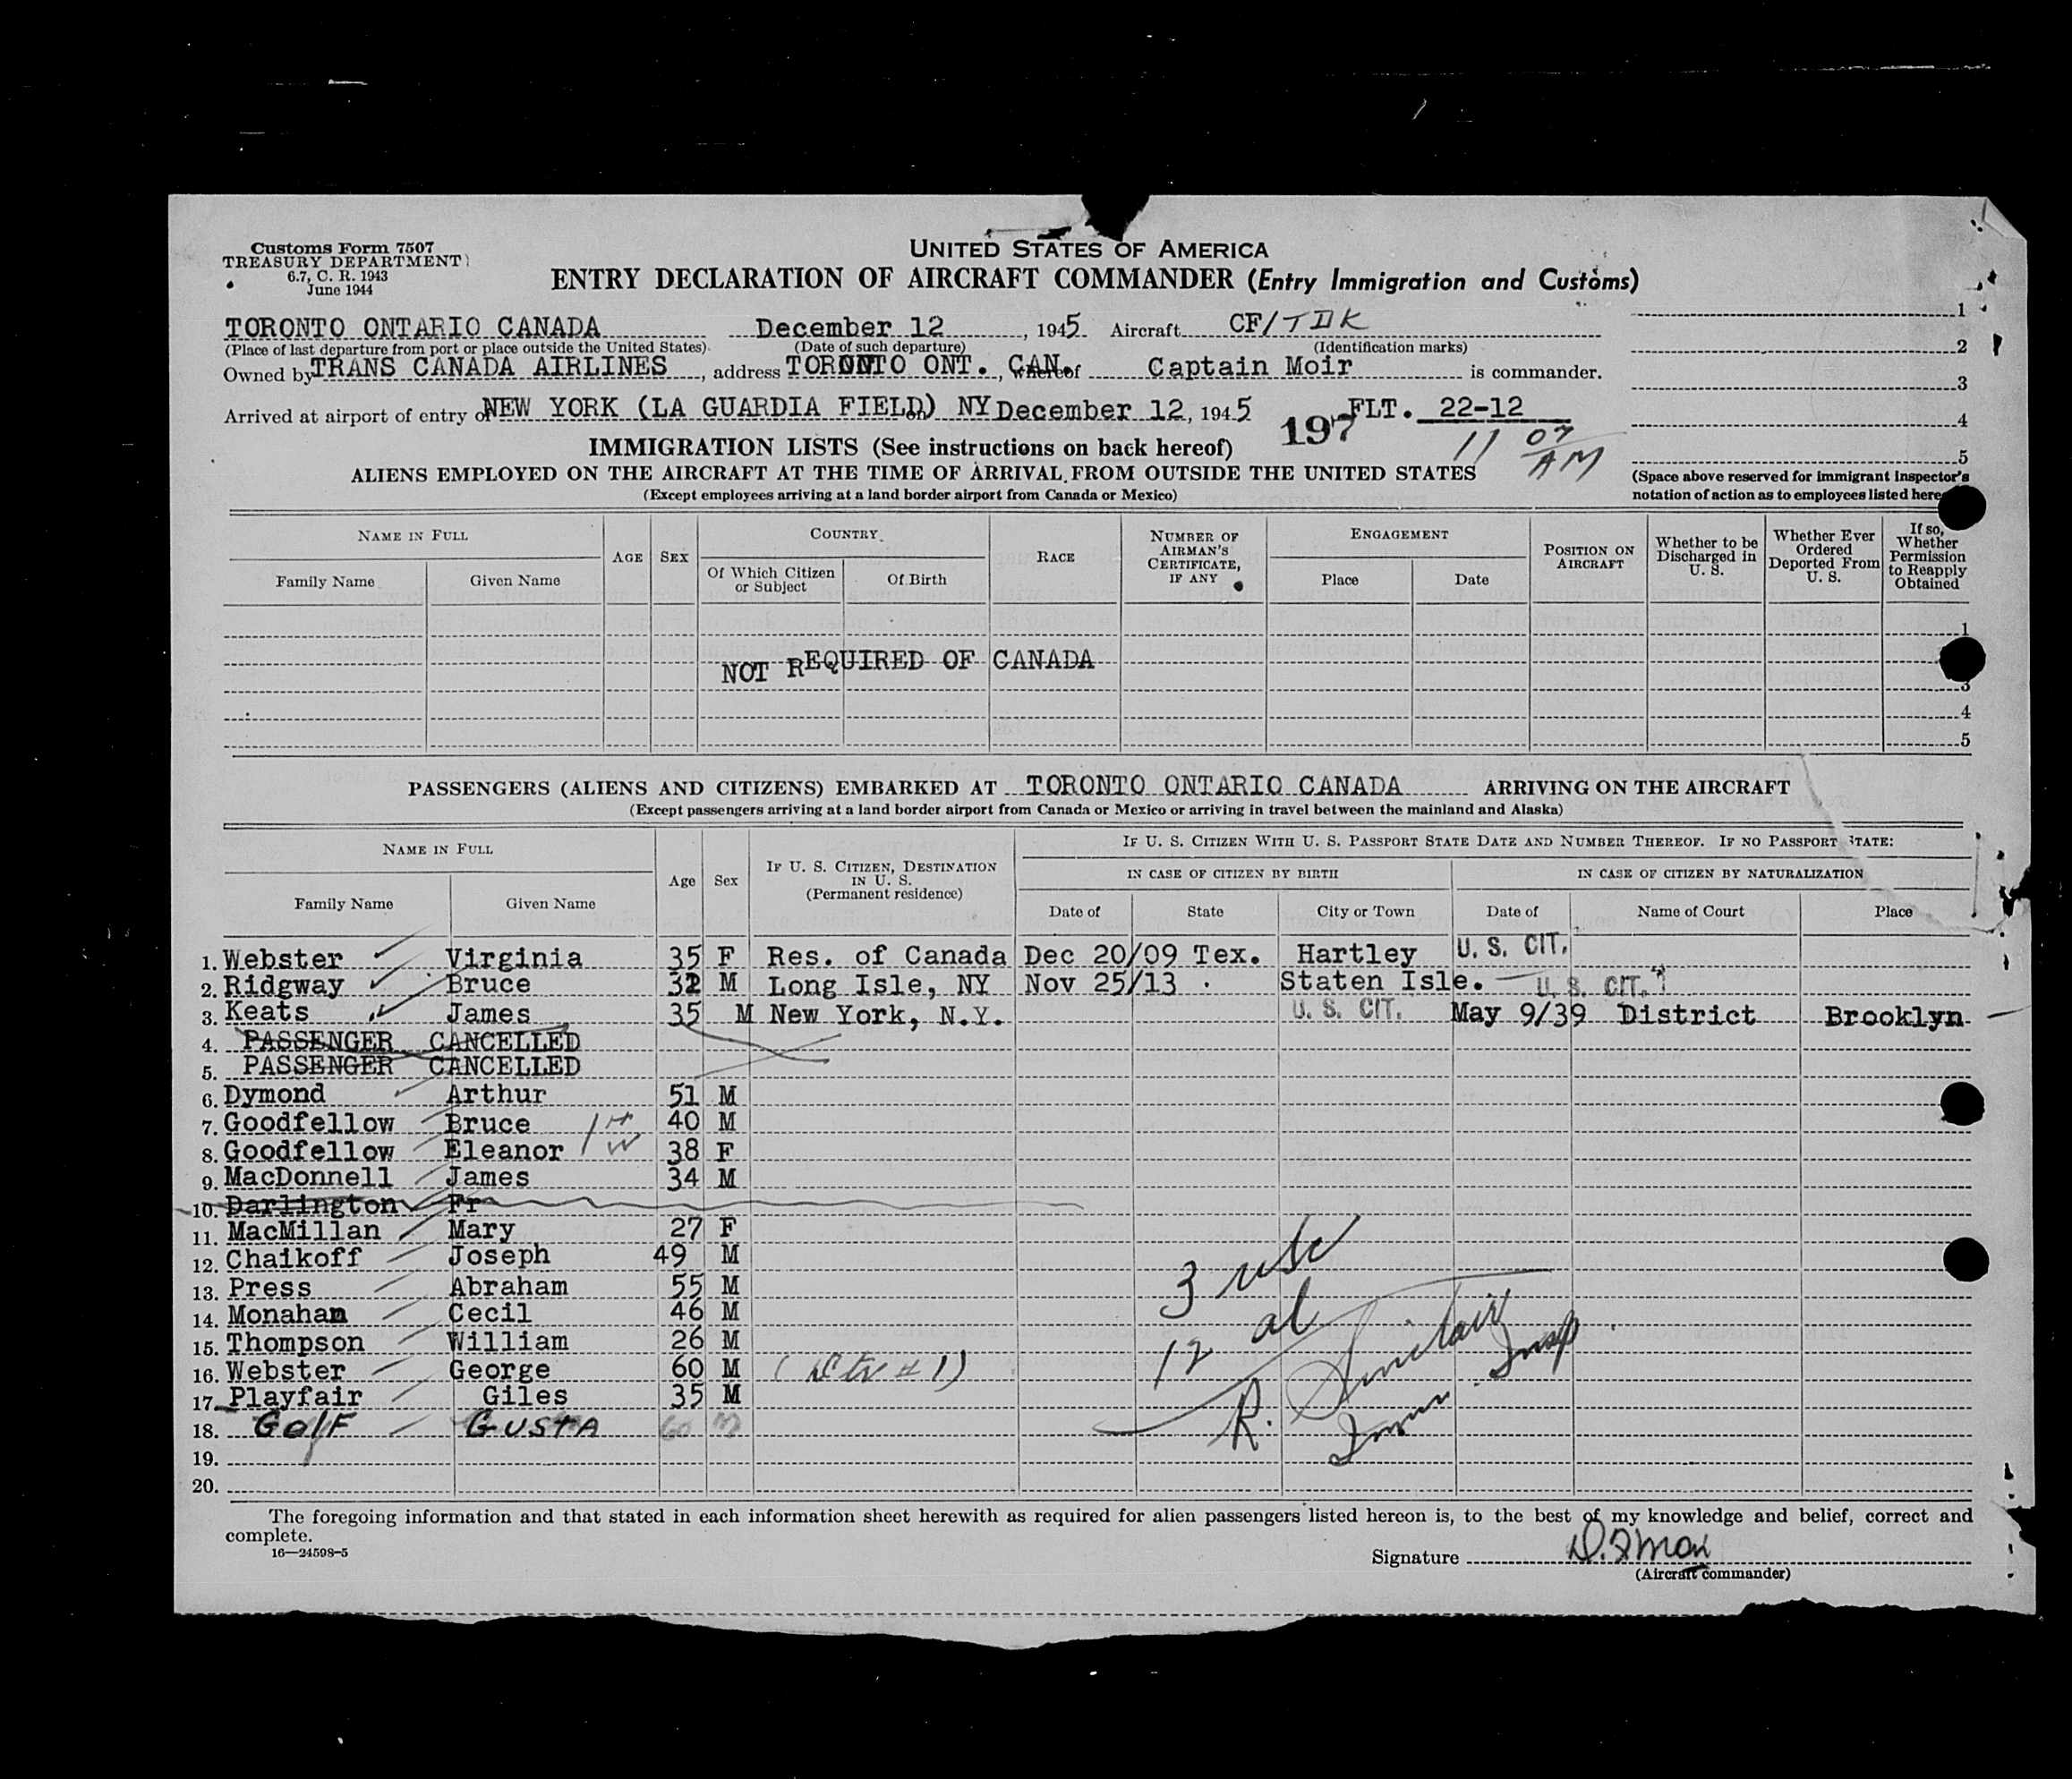 Customs Form 7507
TREASURY DEPARTMENT
6.7, C. R. 1943
June 1944
UNITED STATES OF AMERICA
ENTRY DECLARATION OF AIRCRAFT COMMANDER (Entry Immigration and Customs)
TORONTO ONTARIO CANADA December 12, 1945 Aircraft CF/TDK 1
(Place of last departure from port or place outside the United States) (Date of such departure) (Identification marks) 2
Owned by TRANS CANADA AIRLINES, address TORONTO ONT. CAN., whereof Captain Moir is commander. 3
Arrived at airport of entry of NEW YORK (LA GUARDIA FIELD) NY on December 12, 1945 FLT. 22-12 4
197 11 07 AM 5
IMMIGRATION LISTS (See instructions on back hereof)
ALIENS EMPLOYED ON THE AIRCRAFT AT THE TIME OF ARRIVAL FROM OUTSIDE THE UNITED STATES
(Except employees arriving at a land border airport from Canada or Mexico)
(Space above reserved for immigrant inspector's
notation of action as to employees listed here
NAME IN FULL AGE SEX COUNTRY RACE NUMBER OF AIRMAN'S CERTIFICATE, IF ANY ENGAGEMENT POSITION ON AIRCRAFT Whether to be Discharged in U. S. Whether Ever Ordered Deported From U. S. If so, Whether Permission to Reapply Obtained
Family Name Given Name Of Which Citizen or Subject Of Birth Place Date
1
NOT REQUIRED OF CANADA
3
4
5
PASSENGERS (ALIENS AND CITIZENS) EMBARKED AT TORONTO ONTARIO CANADA ARRIVING ON THE AIRCRAFT
(Except passengers arriving at a land border airport from Canada or Mexico or arriving in travel between the mainland and Alaska)
NAME IN FULL Age Sex IF U. S. CITIZEN, DESTINATION IN U. S. (Permanent residence) IF U. S. CITIZEN WITH U. S. PASSPORT STATE DATE AND NUMBER THEREOF. IF NO PASSPORT STATE:
IN CASE OF CITIZEN BY BIRTH IN CASE OF CITIZEN BY NATURALIZATION
Family Name Given Name Date of State City or Town Date of Name of Court Place
1. Webster Virginia 35 F Res. of Canada Dec 20/09 Tex. Hartley U. S. CIT.
2. Ridgway Bruce 32 M Long Isle, NY Nov 25/13 . Staten Isle. U. S. CIT.
3. Keats James 35 M New York, N.Y. U. S. CIT. May 9/39 District Brooklyn
4. PASSENGER CANCELLED
5. PASSENGER CANCELLED
6. Dymond Arthur 51 M
7. Goodfellow Bruce H 40 M
8. Goodfellow Eleanor W 38 F
9. MacDonnell James 34 M
10. Darlington Fr
11. MacMillan Mary 27 F
12. Chaikoff Joseph 49 M
13. Press Abraham 55 M
14. Monahan Cecil 46 M
15. Thompson William 26 M
16. Webster George 60 M
17. Playfair Giles 35 M
18. Golf GUSTA 60 M
19.
20.
3 usc
12 al
R. Sinclair
Imm. Insp.
The foregoing information and that stated in each information sheet herewith as required for alien passengers listed hereon is, to the best of my knowledge and belief, correct and
complete.
16—24598-5
Signature
(Aircraft commander)